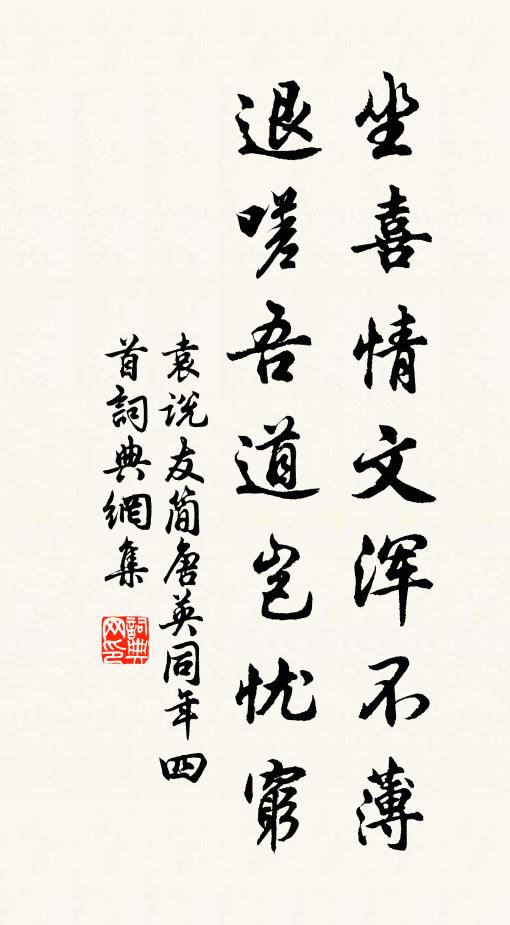 坐喜情文浑不薄
退嗟吾道岂忧窮
袁说友简唐英同年四
首詞典網集
詞典网印